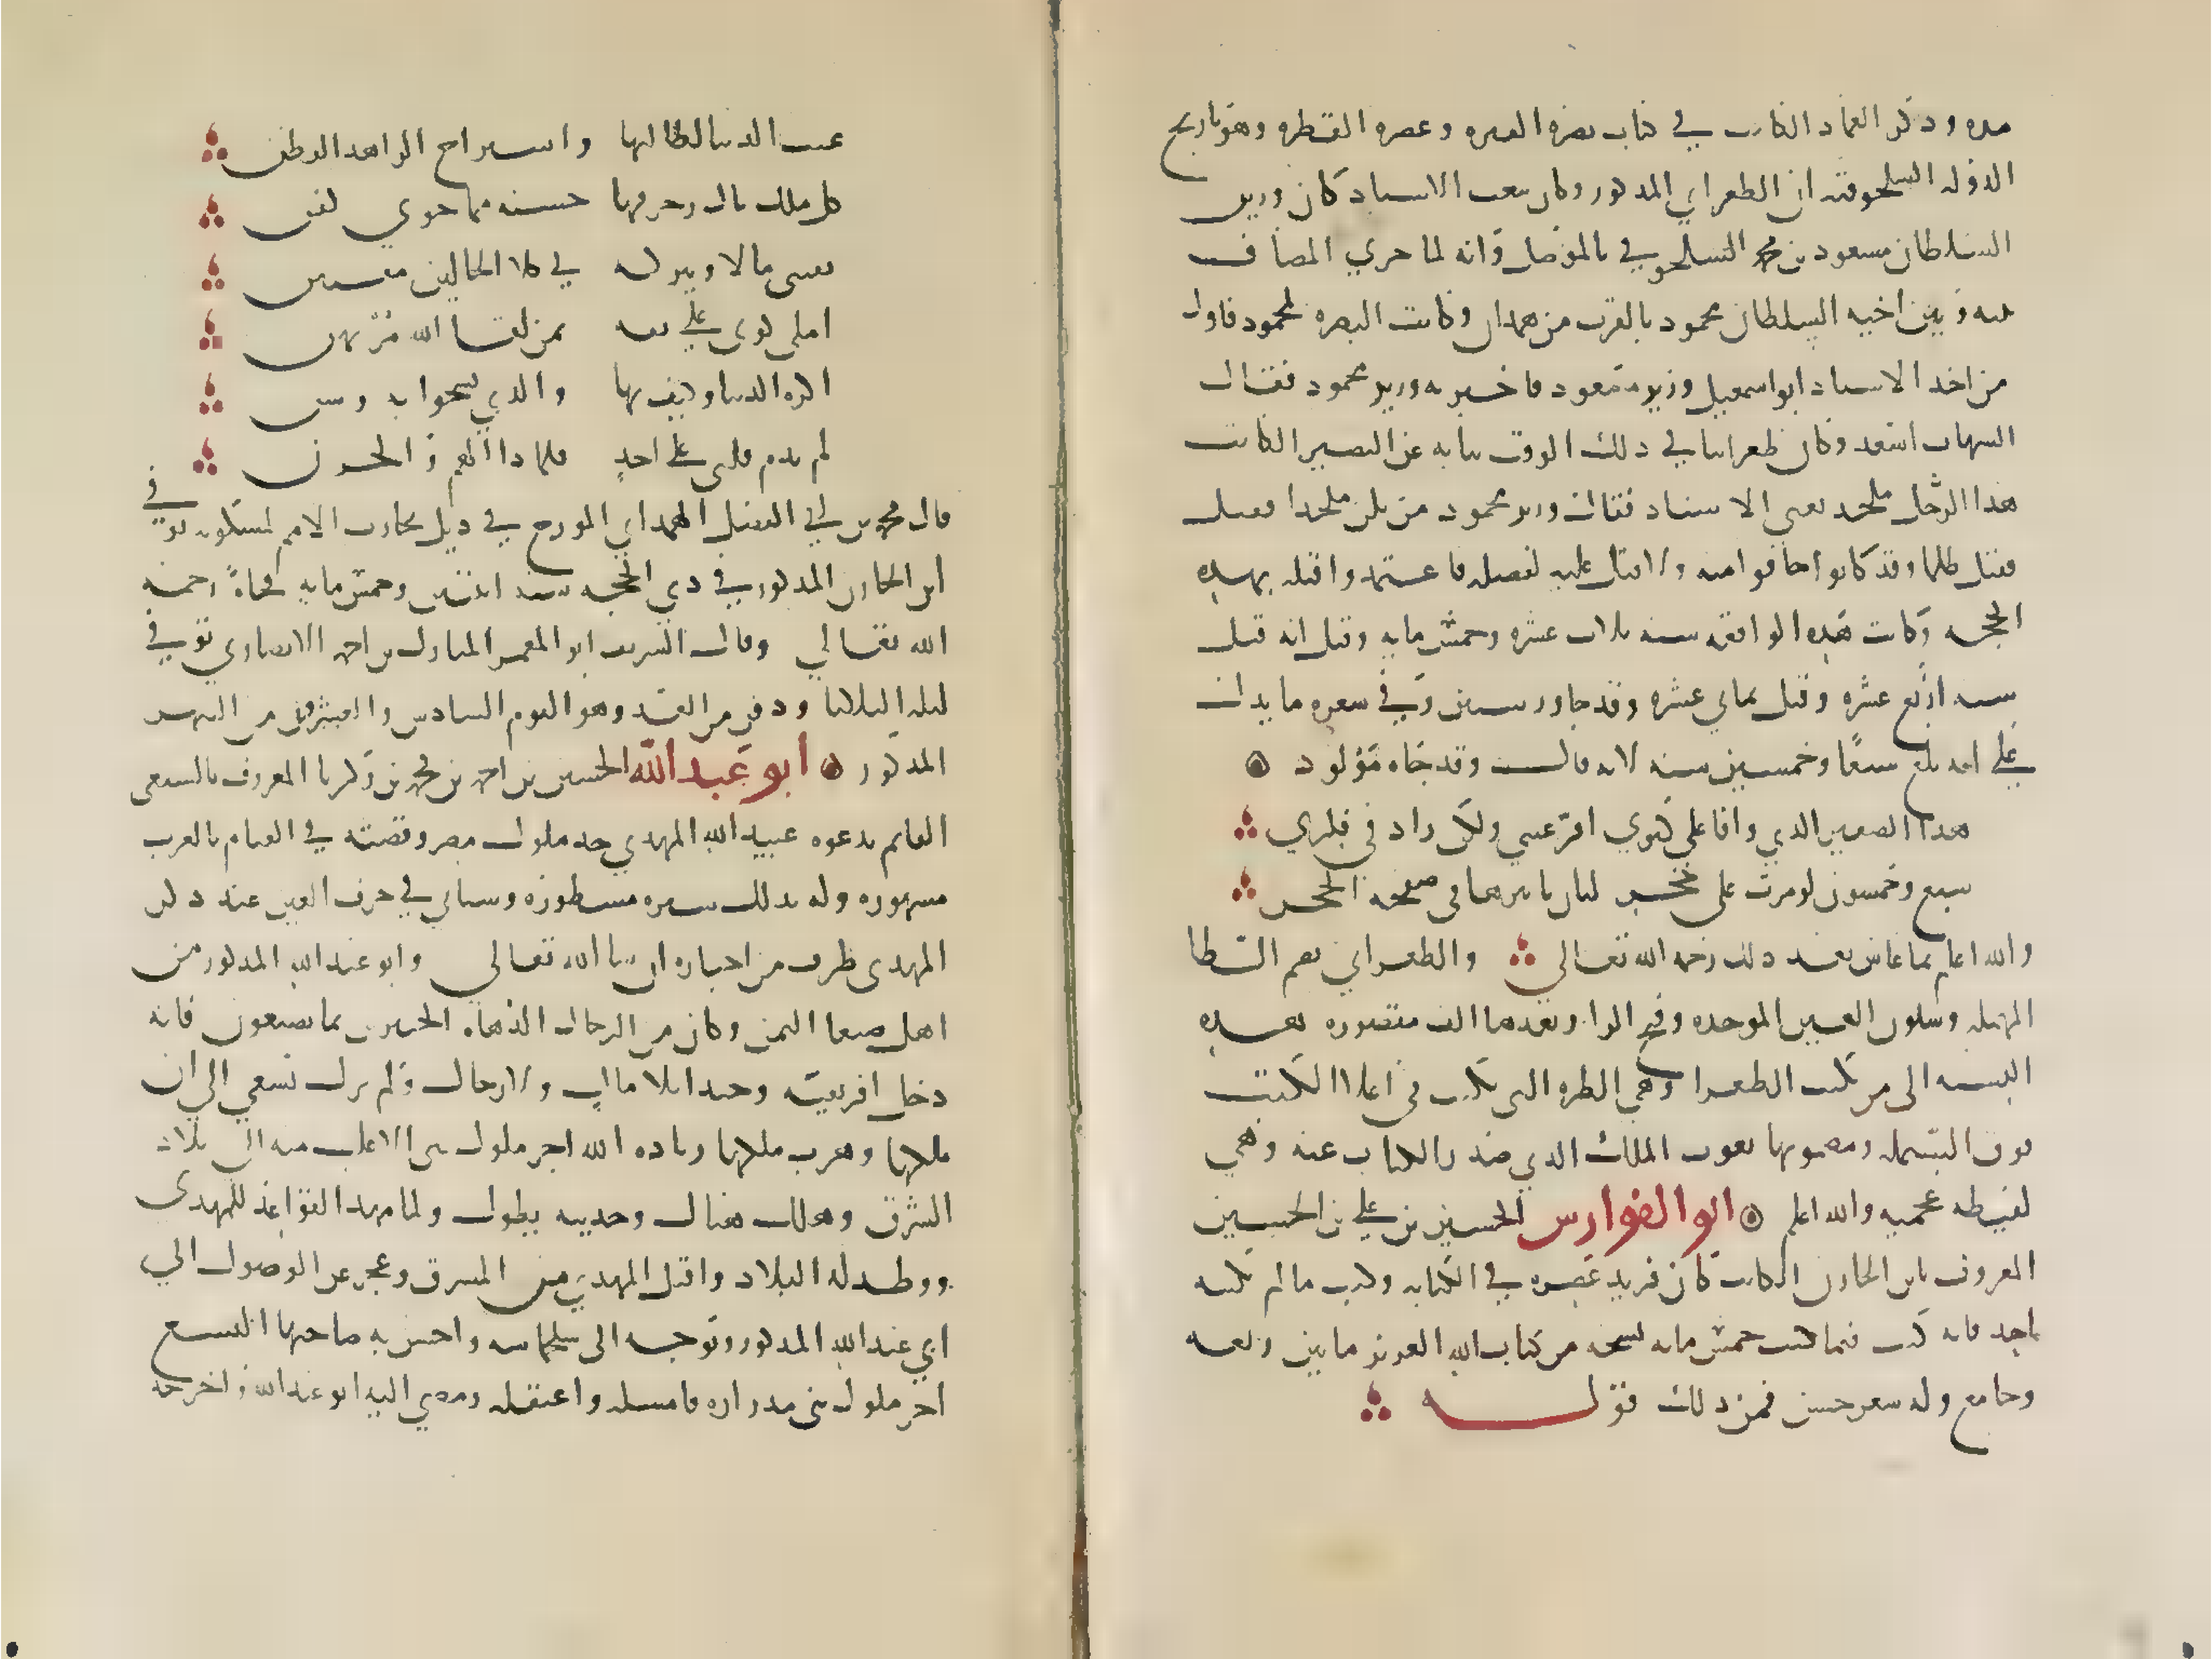 مده وذكر العماد الكاتب في كتاب نصرة الفترة وعصرة القطرة وهو تاريخ
الدولة السلجوقية ان الطغراي المذكور وكان ينعت الاستاد كان وزير
السلطان مسعود بن محمد السلجوقي بالموصل وانه لما جري المصاف
بينه وبين اخيه السلطان محمود بالقرب من همدان وكانت النصرة لمحمود فاول
من اخذ الاستاد ابو اسمعيل وزير مسعود فاخبر به وزير محمود فقال
الشهاب اسعد وكان طغرائيا في ذلك الوقت نيابة عن النصير الكاتب
هذا الرجل ملحد يعني الاستاد فقال وزير محمود من يكن ملحدا فقتل
فقتل ظلما وقد كانوا خافوا منه ولاقبال عليه لفضله فاعتمدوا قتله بهذه
الحجة وكانت هذه الواقعة سنة ثلاث عشرة وخمس مايه وقيل انه قتل
سنة اربع عشرة وقيل ثماني عشرة وقد جاوز ستين وفي شعره ما يدل
علي انه بلغ سبعًا وخمسين سنه لانه قال وقد جاه مولود
هذا الصغير الذي وافا علي كبري اقر عيني ولكن زاد في فكري
سبع وخمسون لو مرت علي حجر لبان تاثيرها في صفحة الحجر
والله اعلم بما عاش بعد ذلك رحمه الله تعالي والطغراي بضم الطا
المهملة وسكون الغين الموحده وفتح الرا وبعدها الف مقصوره هذه
النسبه الي من يكتب الطغرا وهي الطره التي تكتب في اعلا الكتب
فوق البسمله ومضمونها نعوت الملك الذي صدر الكتاب عنه وهي
لفظه عجميه والله اعلم ابو الفوارس الحسين بن علي بن الحسين
المعروف بابن الخازن الكاتب كان فريد عصره في الكتابه وكتب ما لم يكتبه
احد فانه كتب فيما كتب خمس مايه نسخه من كتاب الله العزيز ما بين ربعه
وجامع وله شعر حسن فمن ذلك قوله
عنت الدنيا لطالبها واستراح الزاهد الفطن
كل ملك نال زخرفها حسبه مما حوي كفن
يقتني مالا ويتركه في كلا الحالين مفتتن
املي كوني علي ثقه من لقا الله مرتهن
اكره الدنيا وكيف بها والذي تسخوا به وسن
لم تدم قبلي علي احدٍ فلماذا الهم والحزن
قال محمد بن ابي الفضل الهمداني المورخ في ذيل تجارب الامم لمسكويه توفي
ابن الخازن المذكور في ذي الحجه سنه اثنتين وخمس مايه فجاةً رحمه
الله تعالي وقال الشريف ابو المعمر المبارك بن احمد الانصاري توفي
ليلة الثلاثا ودفن من الغد وهو اليوم السادس والعشرون من الشهر
المذكور ابو عبد الله الحسين بن احمد بن محمد بن زكريا المعروف بالشيعي
القايم بدعوه عبيد الله المهدي جد ملوك مصر وقصته في القيام بالغرب
مشهوره وله بذلك سيره مسطوره وسياتي في حرف العين عند ذكر
المهدي طرف من اخباره ان شا الله تعالي وابو عبد الله المذكور من
اهل صنعا اليمن وكان من الرجال الدهاه الخبيرين بما يصنعون فانه
دخل افريقيه وحيدا بلا مال ولا رجال ولم يزل يسعي الي ان
ملكها وهرب ملكها زياده الله اخر ملوك بني الاغلب منه الي بلاد
الشرق وهلك هناك وحديثه يطول ولما مهد القواعد للمهدي
ووطد له البلاد واقبل المهدي من المشرق وعجز عن الوصول الي
ابي عبد الله المذكور وتوجه الي سلجماسه واحس به صاحبها اليسع
اخر ملوك بني مدراره فامسكه واعتقله ومضي اليه ابو عبد الله واخرجه